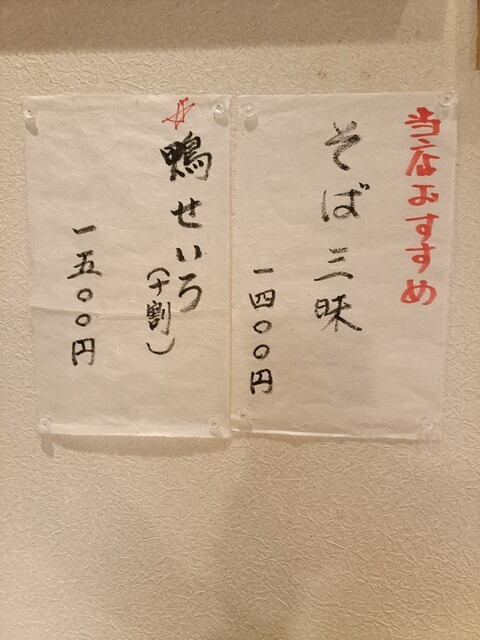 当店おすすめ
そば三昧
一四〇〇円
☆
鴨せいろ
(十割)
一五〇〇円